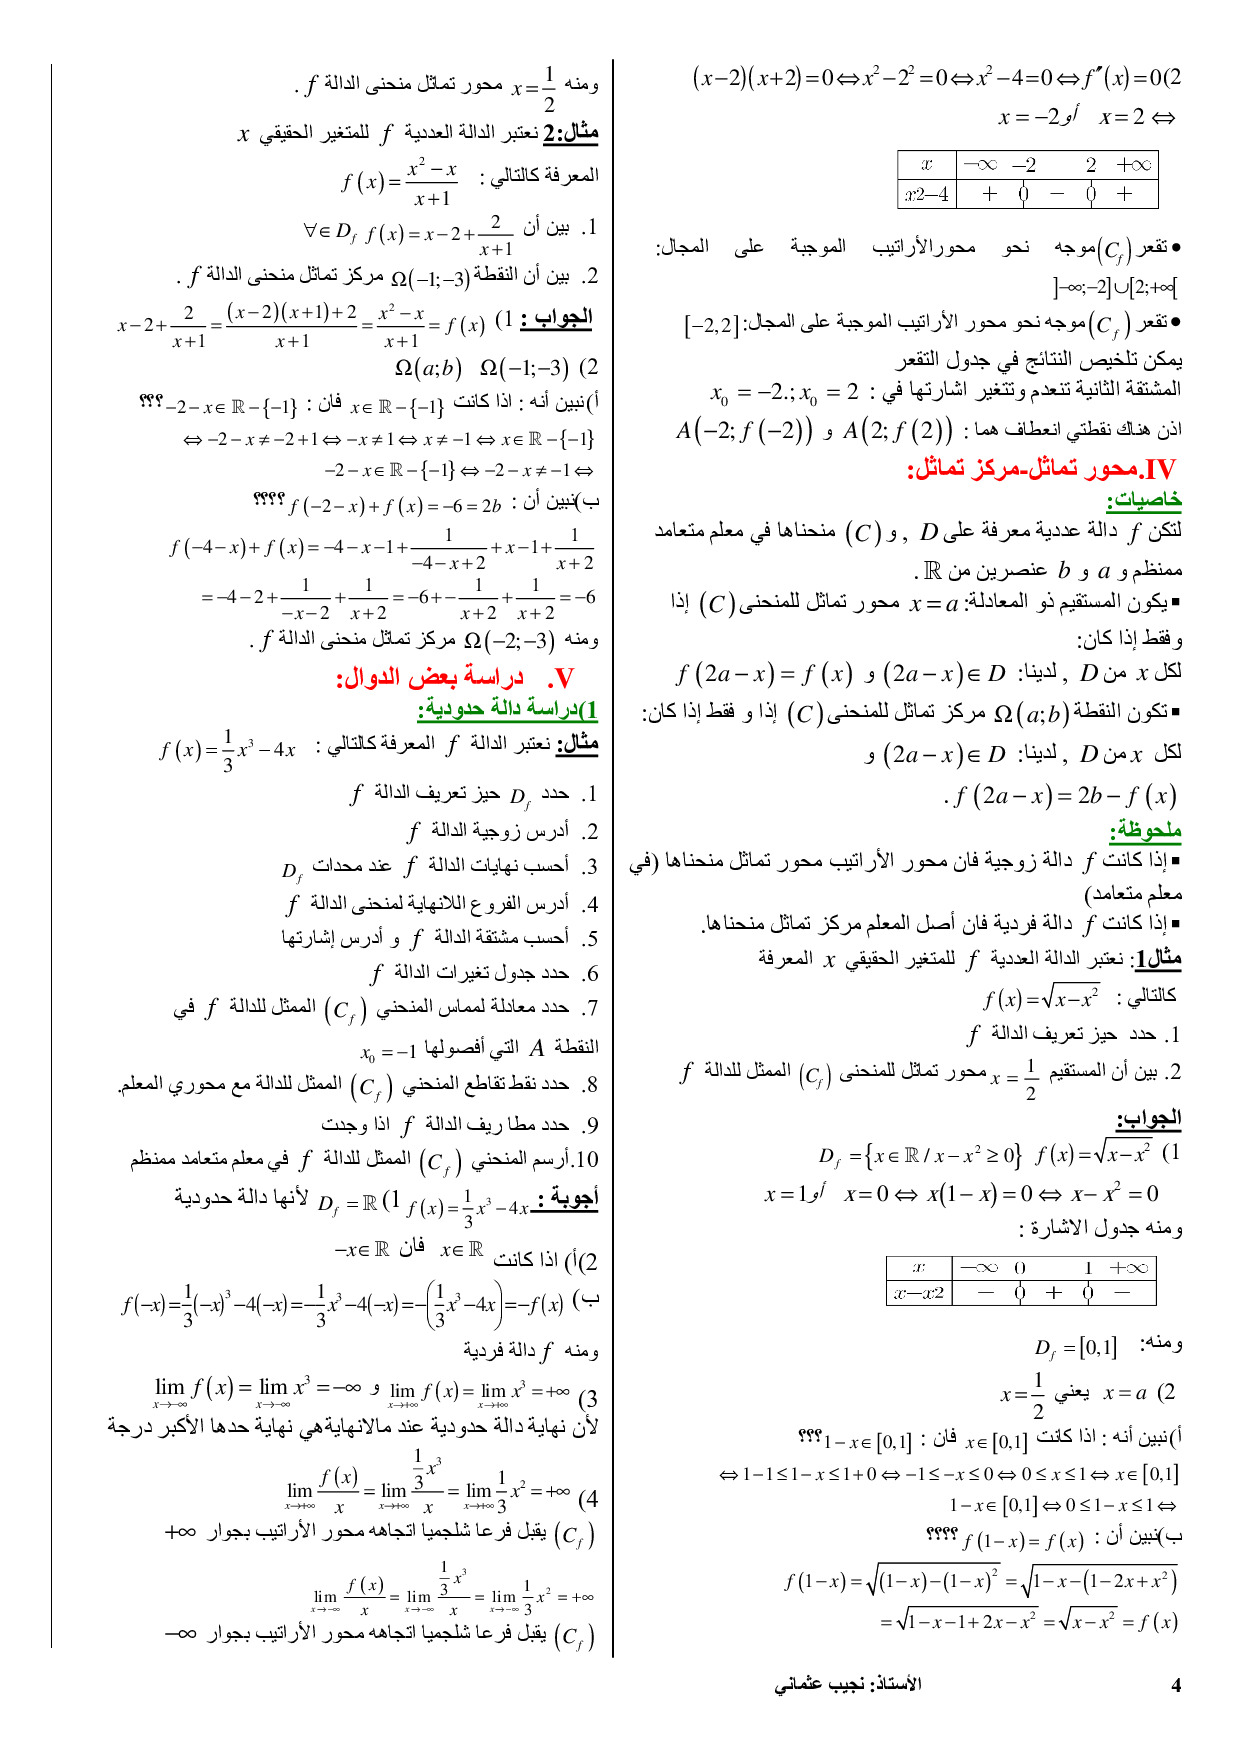 (x−2)(x+2)=0⇔x²−2²=0⇔x²−4=0⇔f″(x)=0(2
⇔ x=2 أو x=−2
x −∞ −2 2 +∞
x2−4 + 0 − 0 +
• تقعر (C_f) موجه نحو محورالأراتيب الموجبة على المجال:
]−∞;−2]∪[2;+∞[
• تقعر (C_f) موجه نحو محور الأراتيب الموجبة على المجال: [−2,2]
يمكن تلخيص النتائج في جدول التقعر
المشتقة الثانية تنعدم وتتغير اشارتها في : x₀ = −2.; x₀ = 2
اذن هناك نقطتي انعطاف هما : A(2; f(2)) و A(−2; f(−2))
IV.محور تماثل-مركز تماثل:
خاصيات:
لتكن f دالة عددية معرفة على D , و (C) منحناها في معلم متعامد
ممنظم و a و b عنصرين من ℝ .
▪ يكون المستقيم ذو المعادلة: x=a محور تماثل للمنحنى (C) إذا
وفقط إذا كان:
لكل x من D , لدينا: (2a−x)∈D و f(2a−x)=f(x)
▪ تكون النقطة Ω(a;b) مركز تماثل للمنحنى (C) إذا و فقط إذا كان:
لكل x من D , لدينا: (2a−x)∈D و
f(2a−x)=2b−f(x) .
ملحوظة:
▪ إذا كانت f دالة زوجية فان محور الأراتيب محور تماثل منحناها (في
معلم متعامد)
▪ إذا كانت f دالة فردية فان أصل المعلم مركز تماثل منحناها.
مثال1: نعتبر الدالة العددية f للمتغير الحقيقي x المعرفة
كالتالي : f(x)=√(x−x²)
1. حدد حيز تعريف الدالة f
2. بين أن المستقيم x=1/2 محور تماثل للمنحنى (C_f) الممثل للدالة f
الجواب:
1) f(x)=√(x−x²) D_f={x∈ℝ/x−x²≥0}
x−x²=0 ⇔ x(1−x)=0 ⇔ x=0 أو x=1
ومنه جدول الاشارة :
x −∞ 0 1 +∞
x−x2 − 0 + 0 −
ومنه: D_f=[0,1]
2) x=a يعني x=1/2
أ)نبين أنه : اذا كانت x∈[0,1] فان : 1−x∈[0,1]؟؟؟
⇔1−1≤1−x≤1+0⇔−1≤−x≤0⇔0≤x≤1⇔x∈[0,1]
1−x∈[0,1]⇔0≤1−x≤1⇔
ب)نبين أن : f(1−x)=f(x) ؟؟؟؟
f(1−x)=√((1−x)−(1−x)²)=√(1−x−(1−2x+x²))
=√(1−x−1+2x−x²)=√(x−x²)=f(x)
ومنه x=1/2 محور تماثل منحنى الدالة f .
مثال:2 نعتبر الدالة العددية f للمتغير الحقيقي x
المعرفة كالتالي : f(x)=(x²−x)/(x+1)
1. بين أن f(x)=x−2+2/(x+1) ∀∈D_f
2. بين أن النقطة Ω(−1;−3) مركز تماثل منحنى الدالة f .
الجواب : 1) x−2+2/(x+1)=((x−2)(x+1)+2)/(x+1)=(x²−x)/(x+1)=f(x)
2) Ω(−1;−3) Ω(a;b)
أ)نبين أنه : اذا كانت x∈ℝ−{−1} فان : −2−x∈ℝ−{−1}؟؟؟
⇔−2−x≠−2+1⇔−x≠1⇔x≠−1⇔x∈ℝ−{−1}
−2−x∈ℝ−{−1}⇔−2−x≠−1⇔
ب)نبين أن : f(−2−x)+f(x)=−6=2b ؟؟؟؟
f(−4−x)+f(x)=−4−x−1+1/(−4−x+2)+x−1+1/(x+2)
=−4−2+1/(−x−2)+1/(x+2)=−6+−1/(x+2)+1/(x+2)=−6
ومنه Ω(−2;−3) مركز تماثل منحنى الدالة f .
V. دراسة بعض الدوال:
1)دراسة دالة حدودية:
مثال: نعتبر الدالة f المعرفة كالتالي : f(x)=1/3 x³−4x
1. حدد D_f حيز تعريف الدالة f
2. أدرس زوجية الدالة f
3. أحسب نهايات الدالة f عند محدات D_f
4. أدرس الفروع اللانهاية لمنحنى الدالة f
5. أحسب مشتقة الدالة f و أدرس إشارتها
6. حدد جدول تغيرات الدالة f
7. حدد معادلة لمماس المنحني (C_f) الممثل للدالة f في
النقطة A التي أفصولها x₀=−1
8. حدد نقط تقاطع المنحني (C_f) الممثل للدالة مع محوري المعلم.
9. حدد مطا ريف الدالة f اذا وجدت
10.أرسم المنحني (C_f) الممثل للدالة f في معلم متعامد ممنظم
أجوبة : f(x)=1/3 x³−4x (1 D_f=ℝ لأنها دالة حدودية
2)أ) اذا كانت x∈ℝ فان −x∈ℝ
ب) f(−x)=1/3(−x)³−4(−x)=−1/3x³−4(−x)=−(1/3x³−4x)=−f(x)
ومنه f دالة فردية
3) lim_{x→+∞} f(x)=lim_{x→+∞} x³=+∞ و lim_{x→−∞} f(x)=lim_{x→−∞} x³=−∞
لأن نهاية دالة حدودية عند مالانهايةهي نهاية حدها الأكبر درجة
4) lim_{x→+∞} f(x)/x=lim_{x→+∞} (1/3 x³)/x=lim_{x→+∞} 1/3 x²=+∞
(C_f) يقبل فرعا شلجميا اتجاهه محور الأراتيب بجوار +∞
lim_{x→−∞} f(x)/x=lim_{x→−∞} (1/3 x³)/x=lim_{x→−∞} 1/3 x²=+∞
(C_f) يقبل فرعا شلجميا اتجاهه محور الأراتيب بجوار −∞
4 الأستاذ: نجيب عثماني